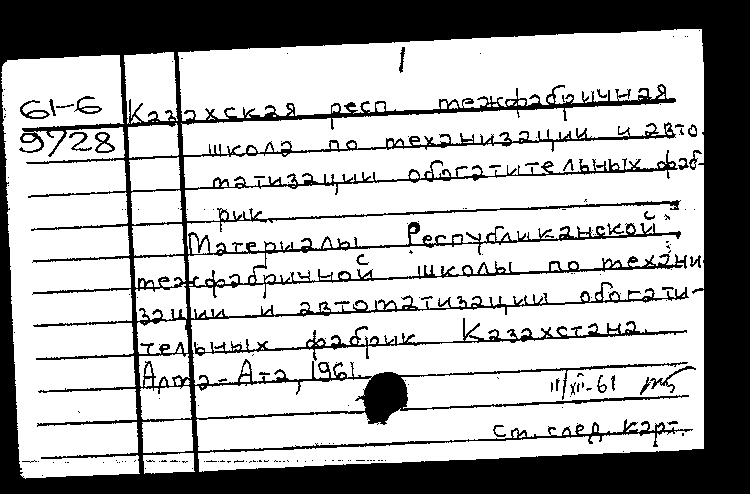 1
61-6 Казахская респ. межфабричная
9728 школа по механизации и авто-
матизации обогатительных фаб-
рик.
Материалы Республиканской
межфабричной школы по механи-
зации и автоматизации обогати-
тельных фабрик Казахстана.
Алма-Ата, 1961.
11/XII-61
См. след. карт.